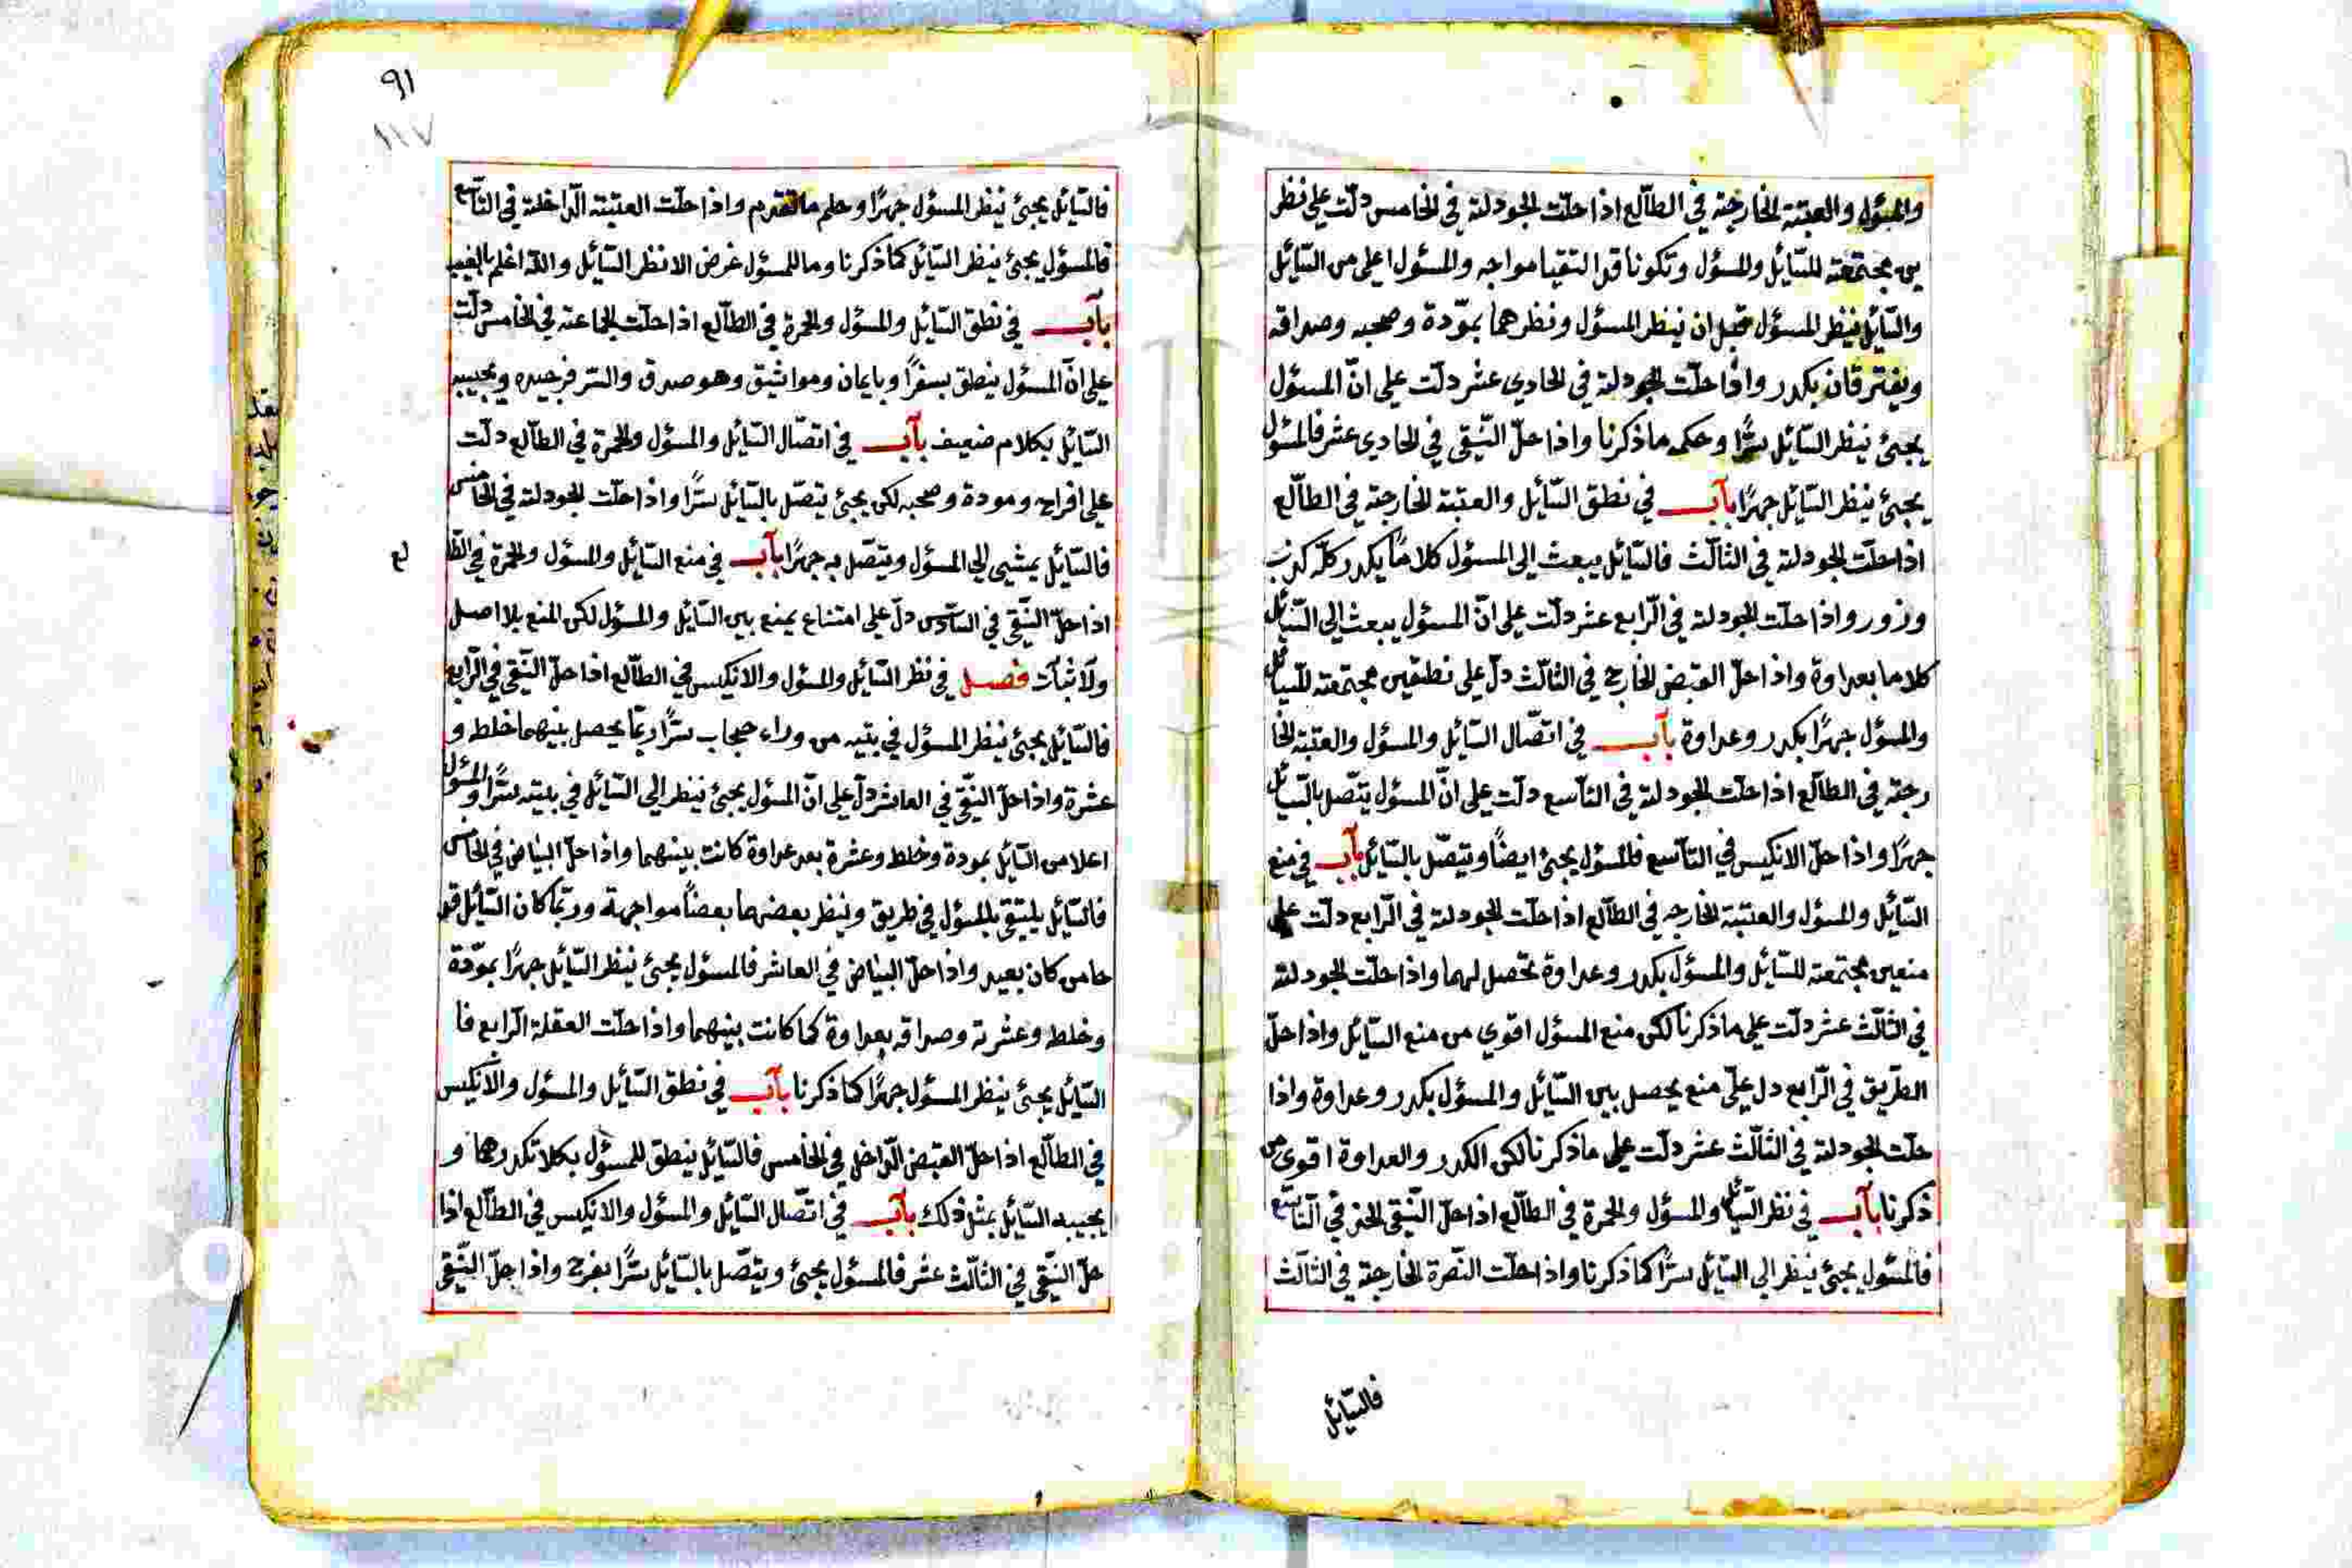 والمسؤل والعتبة الخارجة في الطالع اذا حلت الجودلة في الخامس دلت علي نظر
ين مجتمعة للسائل والمسؤل وتكونا قد التقيا مواجه والمسؤل اعلي من السائل
والسائل ينظر المسؤل قبل ان ينظر المسؤل ونظرهما بمودة وصحبه وصداقه
ويفترقان بكدر واذا حلت الجودلة في الحادي عشر دلت علي ان المسؤل
يجئ ينظر السائل سرًا وحكمه ما ذكرنا واذا حل النقي في الحادي عشر فالمسؤل
يجئ ينظر السائل جهرًا باب في نطق السائل والعتبة الخارجة في الطالع
اذا حلت الجودلة في الثالث فالسائل يبعث الي المسؤل كلامًا يكدر كله كذب
وزور واذا حلت الجودلة في الرابع عشر دلت علي ان المسؤل يبعث الي السائل
كلاما بعداوة واذا حل القبض الخارج في الثالث دل علي نطقين مجتمعة للسائل
والمسؤل جهرًا بكدر وعداوة باب في اتصال السائل والمسؤل والعتبة الخا
رجة في الطالع اذا حلت الجودلة في التاسع دلت علي ان المسؤل يتصل بالسائل
جهرًا واذا حل الانكيس في التاسع فالمسؤل يجئ ايضًا ويتصل بالسائل باب في منع
السائل والمسؤل والعتبة الخارجه في الطالع اذا حلت الجودلة في الرابع دلت علي
منعين مجتمعة للسائل والمسؤل بكدر وعداوة تحصل لهما واذا حلت الجودلة
في الثالث عشر دلت علي ما ذكرنا لكن منع المسؤل اقوي من منع السائل واذا حل
الطريق في الرابع دل علي منع يحصل بين السائل والمسؤل بكدر وعداوة واذا
حلت الجودلة في الثالث عشر دلت علي ما ذكرنا لكن الكدر والعداوة اقوي من
ذكرنا باب في نظر السائل والمسؤل والحمرة في الطالع اذا حل النقي الخد في التاسع
فالمسؤل يجئ ينظر الي السائل سرًا كما ذكرنا واذا حلت النصرة الخارجة في الثالث
فالسائل
٩١
١١٧
فالسائل يجئ ينظر المسؤل جهرًا وحكم ما تقدم واذا حلت العتبة الداخلة في التاسع
فالمسؤل يجئ ينظر السائل كما ذكرنا وما للمسؤل غرض الا نظر السائل والله اعلم بالغيب
باب في نطق السائل والمسؤل والحمرة في الطالع اذا حلت الجماعة في الخامس دلت
علي ان المسؤل ينطق بسفرًا وبايمان ومواثيق وهو صدق والسر فرجيده ويجيبه
السائل بكلام ضعيف باب في اتصال السائل والمسؤل والحمرة في الطالع دلت
علي افراح ومودة وصحبه لكن يجئ يتصل بالسائل سرًا واذا حلت الجودلة في الخامس
فالسائل يمشي الي المسؤل ويتصل به جهرًا باب في منع السائل والمسؤل والحمرة في الطا
لع
اذا حل النقي في السادس دل علي امتناع يمنع بين السائل والمسؤل لكن المنع بلا اصل
ولا ثبات فصل في نظر السائل والمسؤل والانكيس في الطالع اذا حل النقي في الرابع
فالسائل يجئ ينظر المسؤل في بيته من وراء حجاب سرًا ربما يحصل بينهما خلط و
عشرة واذا حل النقي في العاشر دل علي ان المسؤل يجئ ينظر الي السائل في بيته سرًا والمسؤل
اعلا من السائل بمودة وخلط وعشرة بعد عداوة كانت بينهما واذا حل البياض في الخامس
فالسائل يلتقي بالمسؤل في طريق وينظر بعضهما بعضًا مواجهة وربما كان السائل قد
حا من كان بعيد واذا حل البياض في العاشر فالمسؤل يجئ ينظر السائل جهرًا بمودة
وخلط وعشرة وصداقه بعداوة كما كانت بينهما واذا حلت العقلة الرابع فا
السائل يجئ ينظر المسؤل جهرًا كما ذكرنا باب في نطق السائل والمسؤل والانكيس
في الطالع اذا حل القبض الداخل في الخامس فالسائل ينطق للمسؤل بكلا تكدرهما و
يجيبه السائل بمثل ذلك باب في اتصال السائل والمسؤل والانكيس في الطالع اذا
حل النقي في الثالث عشر فالمسؤل يجئ ويتصل بالسائل سرًا بفرح واذا حل النقي